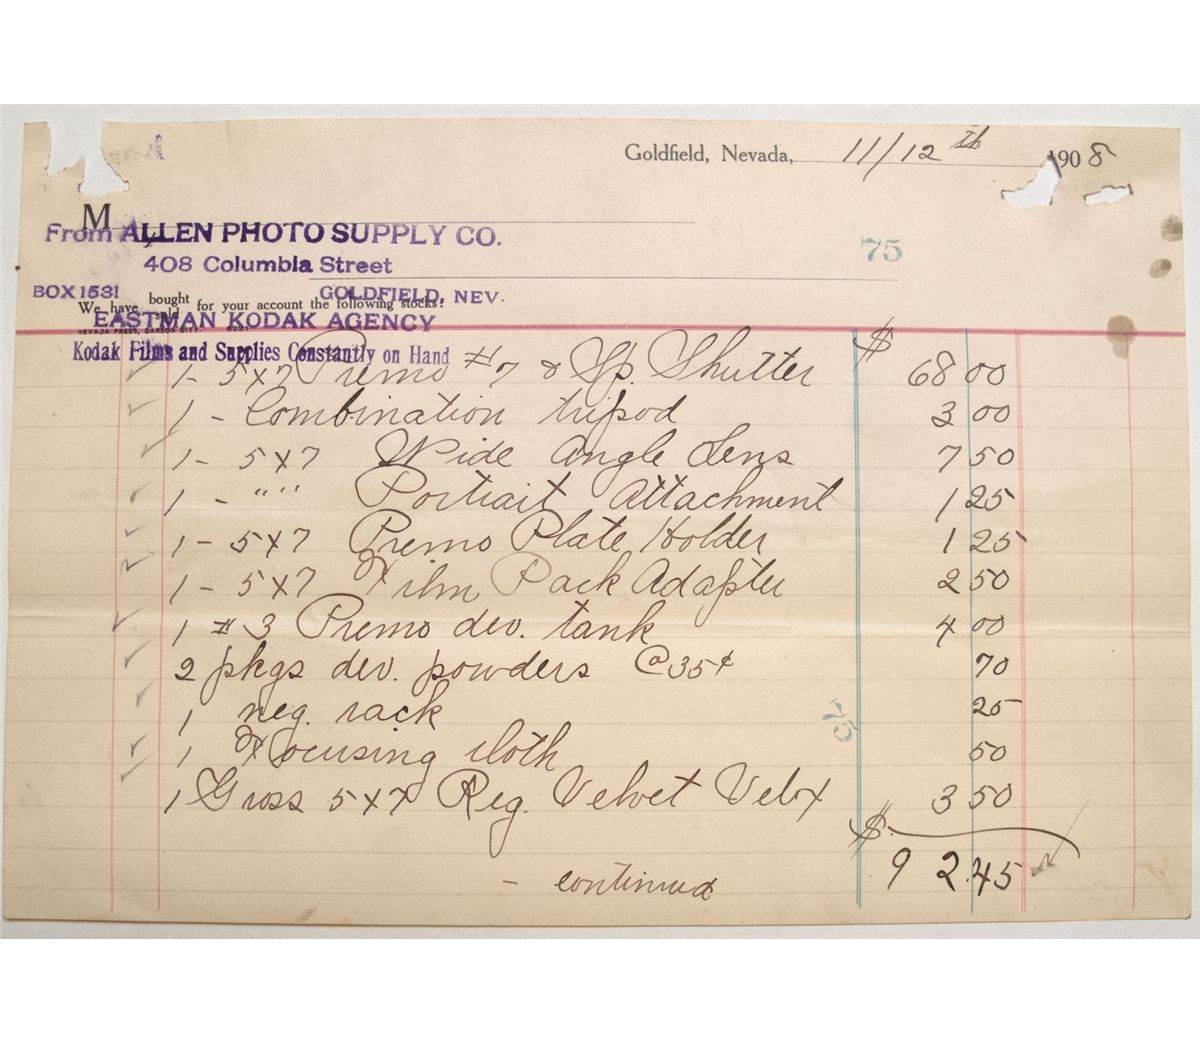 A
Goldfield, Nevada, 11/12th 1908
M
From ALLEN PHOTO SUPPLY CO.
75
408 Columbia Street
BOX 1531 GOLDFIELD, NEV.
We have bought for your account the following stocks:
sold
EASTMAN KODAK AGENCY
NEVADA PRESS, CARSON CITY.
Kodak Films and Supplies Constantly on Hand
$
1 - 5x7 Premo #7 & Sp. Shutter 68 00
1 - Combination tripod 3 00
1 - 5x7 Wide Angle Lens 7 50
1 - " " " " Portrait Attachment 1 25
1 - 5x7 Premo Plate Holder 1 25
1 - 5x7 Film Pack Adapter 2 50
1 #3 Premo dev. tank 4 00
2 pkgs dev. powders @ 35¢ 70
1 neg. rack 25
75
1 Focusing cloth 50
1 Gross 5x7 Reg. Velvet Velox 3 50
$ 92.45
- continued